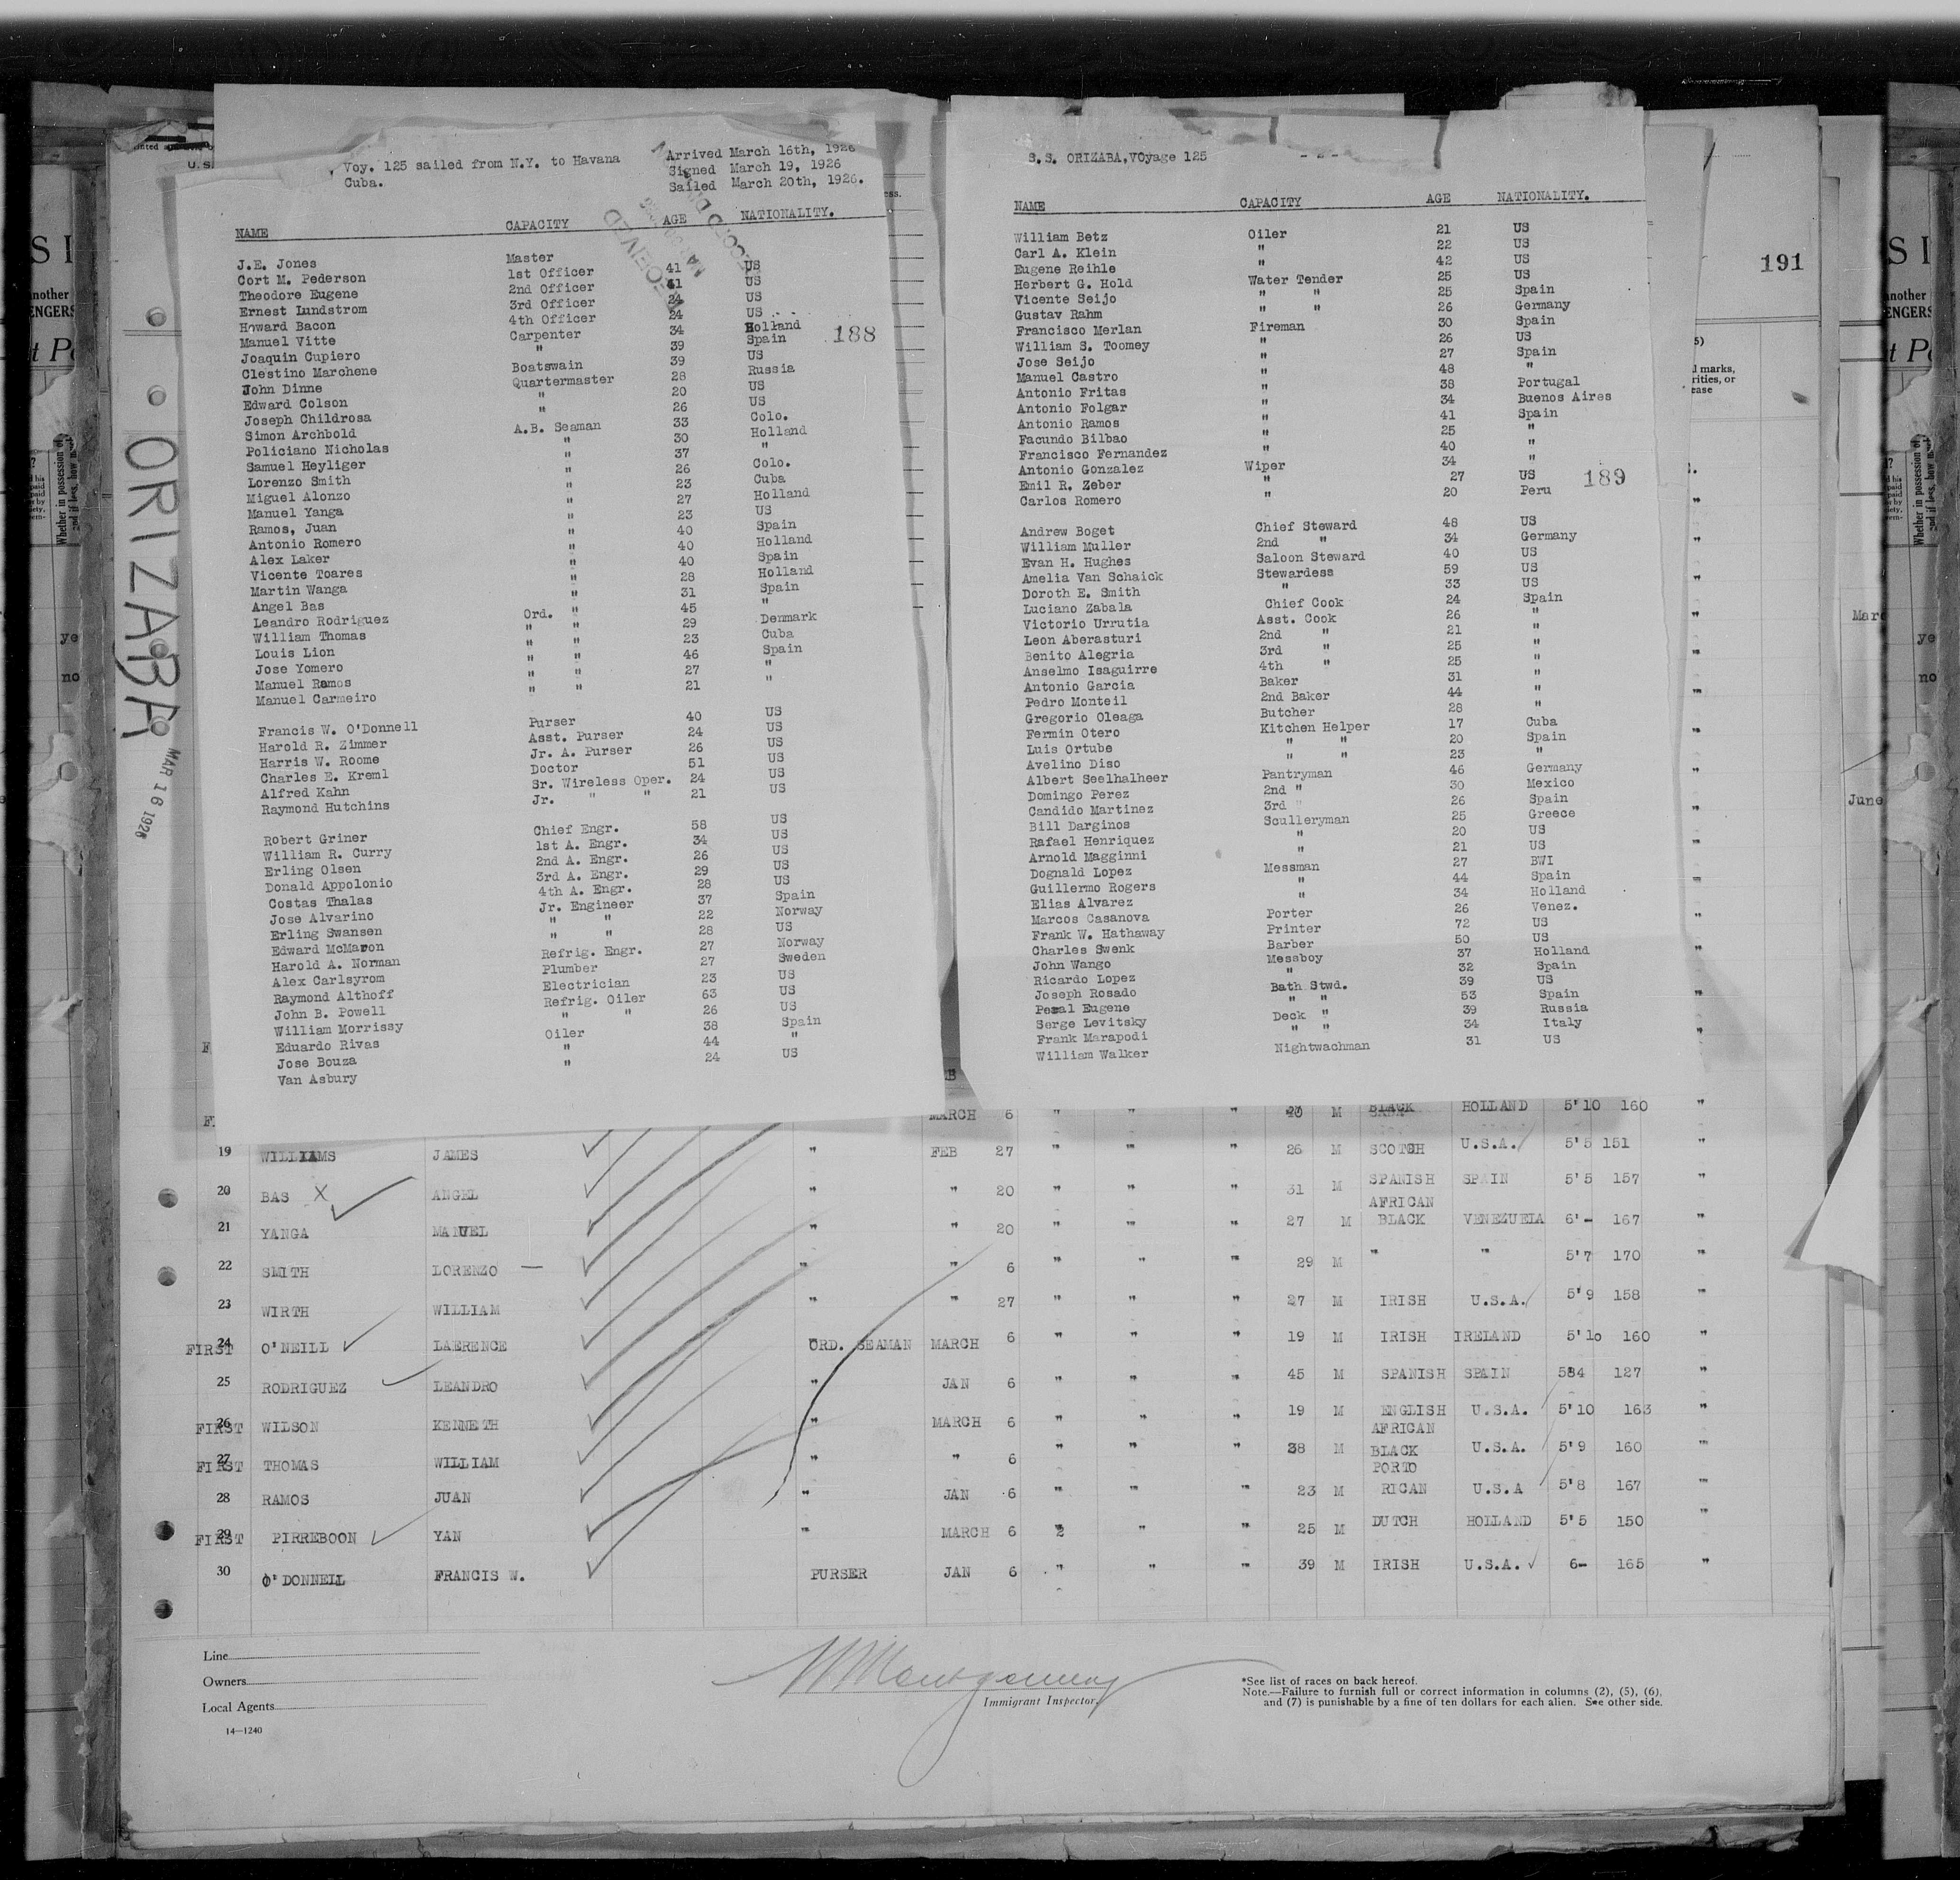 Voy. 125 sailed from N.Y. to Havana
Cuba.
Arrived March 16th, 1926
Signed March 19, 1926
Sailed March 20th, 1926.
NAME CAPACITY AGE NATIONALITY.
J.E. Jones Master
Cort M. Pederson 1st Officer 41 US
Theodore Eugene 2nd Officer 41 US
Ernest Lundstrom 3rd Officer 24 US
Howard Bacon 4th Officer 24 US
Manuel Vitte Carpenter 34 Holland
Joaquin Cupiero " 39 Spain
188
Clestino Marchene Boatswain 39 US
John Dinne Quartermaster 28 Russia
Edward Colson " 20 US
Joseph Childrosa " 26 US
Simon Archbold A.B. Seaman 33 Colo.
Policiano Nicholas " 30 Holland
Samuel Heyliger " 37 "
Lorenzo Smith " 26 Colo.
Miguel Alonzo " 23 Cuba
Manuel Yanga " 27 Holland
Ramos, Juan " 23 US
Antonio Romero " 40 Spain
Alex Laker " 40 Holland
Vicente Toares " 40 Spain
Martin Wanga " 28 Holland
Angel Bas " 31 Spain
Leandro Rodriguez Ord. " 45 "
William Thomas " " 29 Denmark
Louis Lion " " 23 Cuba
Jose Yomero " " 46 Spain
Manuel Ramos " " 27 "
Manuel Carmeiro " " 21 "
Francis W. O'Donnell Purser 40 US
Harold R. Zimmer Asst. Purser 24 US
Harris W. Roome Jr. A. Purser 26 US
Charles E. Kreml Doctor 51 US
Alfred Kahn Sr. Wireless Oper. 24 US
Raymond Hutchins Jr. " " 21 US
Robert Griner Chief Engr. 58 US
William R. Curry 1st A. Engr. 34 US
Erling Olsen 2nd A. Engr. 26 US
Donald Appolonio 3rd A. Engr. 29 US
Costas Thalas 4th A. Engr. 28 US
Jose Alvarino Jr. Engineer 37 Spain
Erling Swansen " " 22 Norway
Edward McMaron " " 28 US
Harold A. Norman Refrig. Engr. 27 Norway
Alex Carlsyrom Plumber 27 Sweden
Raymond Althoff Electrician 23 US
John B. Powell Refrig. Oiler 63 US
William Morrissy " " 26 US
Eduardo Rivas Oiler 38 Spain
Jose Bouza " 44 "
Van Asbury " 24 US
S.S. ORIZABA,VOyage 125 - 2 -
NAME CAPACITY AGE NATIONALITY.
William Betz Oiler 21 US
Carl A. Klein " 22 US
Eugene Reihle " 42 US
Herbert G. Hold Water Tender 25 US
Vicente Seijo " " 25 Spain
Gustav Rahm " " 26 Germany
Francisco Merlan Fireman 30 Spain
William S. Toomey " 26 US
Jose Seijo " 27 Spain
Manuel Castro " 48 "
Antonio Fritas " 38 Portugal
Antonio Folgar " 34 Buenos Aires
Antonio Ramos " 41 Spain
Facundo Bilbao " 25 "
Francisco Fernandez " 40 "
Antonio Gonzalez " 34 "
Emil R. Zeber Wiper 27 US
Carlos Romero " 20 Peru
189
Andrew Boget Chief Steward 48 US
William Muller 2nd " 34 Germany
Evan H. Hughes Saloon Steward 40 US
Amelia Van Schaick Stewardess 59 US
Doroth E. Smith " 33 US
Luciano Zabala Chief Cook 24 Spain
Victorio Urrutia Asst. Cook 26 "
Leon Aberasturi 2nd " 21 "
Benito Alegria 3rd " 25 "
Anselmo Isaguirre 4th " 25 "
Antonio Garcia Baker 31 "
Pedro Monteil 2nd Baker 44 "
Gregorio Oleaga Butcher 28 "
Fermin Otero Kitchen Helper 17 Cuba
Luis Ortube " " 20 Spain
Avelino Diso " " 23 "
Albert Seelhalheer Pantryman 46 Germany
Domingo Perez 2nd " 30 Mexico
Candido Martinez 3rd " 26 Spain
Bill Darginos Sculleryman 25 Greece
Rafael Henriquez " 20 US
Arnold Magginni " 21 US
Dognald Lopez Messman 27 BWI
Guillermo Rogers " 44 Spain
Elias Alvarez " 34 Holland
Marcos Casanova Porter 26 Venez.
Frank W. Hathaway Printer 72 US
Charles Swenk Barber 50 US
John Wango Messboy 37 Holland
Ricardo Lopez " 32 Spain
Joseph Rosado Bath Stwd. 39 US
Pesal Eugene " " 53 Spain
Serge Levitsky Deck " 39 Russia
Frank Marapodi " " 34 Italy
William Walker Nightwachman 31 US
191
ORIZABA
MAR 16 1926
MARCH 6 " " " 40 M BLACK HOLLAND 5'10 160 "
19 WILLIAMS JAMES " FEB 27 " " " 26 M SCOTCH U.S.A. 5'5 151 "
20 BAS X ANGEL " " 20 " " " 31 M SPANISH SPAIN 5'5 157 "
21 YANGA MANUEL " " 20 " " " 27 M AFRICAN BLACK VENEZUELA 6'- 167 "
22 SMITH LORENZO " " 6 " " " 29 M " " 5'7 170 "
23 WIRTH WILLIAM " " 27 " " " 27 M IRISH U.S.A. 5'9 158 "
FIRST 24 O'NEILL LAERENCE ORD. SEAMAN MARCH 6 " " " 19 M IRISH IRELAND 5'10 160 "
25 RODRIGUEZ LEANDRO " JAN 6 " " " 45 M SPANISH SPAIN 584 127 "
FIRST 26 WILSON KENNETH " MARCH 6 " " " 19 M ENGLISH U.S.A. 5'10 163 "
FIRST 27 THOMAS WILLIAM " " 6 " " " 38 M AFRICAN BLACK U.S.A. 5'9 160 "
28 RAMOS JUAN " JAN 6 " " " 23 M PORTO RICAN U.S.A 5'8 167 "
FIRST 29 PIRREBOON YAN " MARCH 6 2 " " 25 M DUTCH HOLLAND 5'5 150 "
30 O'DONNELL FRANCIS W. PURSER JAN 6 " " " 39 M IRISH U.S.A. 6- 165 "
Line
Owners
Local Agents
14—1240
W Montgomery
Immigrant Inspector.
*See list of races on back hereof.
Note.—Failure to furnish full or correct information in columns (2), (5), (6),
and (7) is punishable by a fine of ten dollars for each alien. See other side.